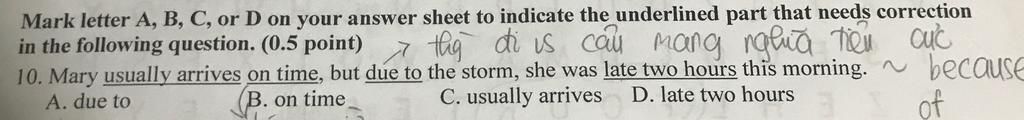 Mark letter A, B, C, or D on your answer sheet to indicate the underlined part that needs correction
in the following question. (0.5 point) → thg đi vs câu mang nghĩa tiêu cực
10. Mary usually arrives on time, but due to the storm, she was late two hours this morning. ~ because
A. due to B. on time C. usually arrives D. late two hours of